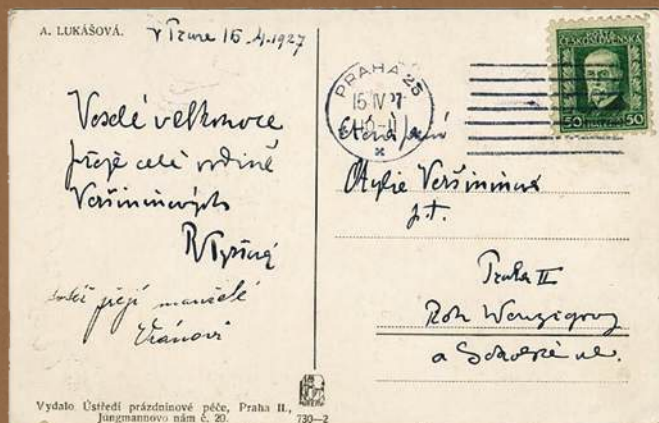 A. LUKÁŠOVÁ.
v Praze 15.4.1927
Veselé velkonoce
přeje celé rodině
Veršininových
R Tyršová
též přejí manželé
Vránovi
Vydalo Ústředí prázdninové péče, Praha II.,
Jungmannovo nám č. 20.
730—2
PRAHA 25
15 IV 27
POŠTA
ČESKOSLOVENSKÁ
50 50
Otylie Veršininová
p.t.
Praha II
Roh Wenzigovy
a Sokolské ul.